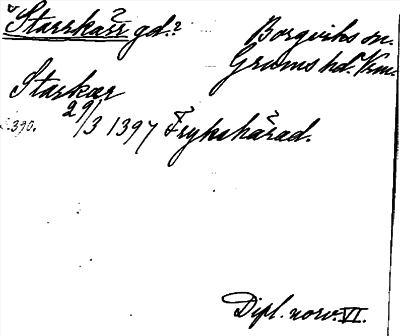 Starrkärr gd.?
Borgviks sn.
Grums hd. Vrm.
Starkær
29/3 1397 Frykshärad.
s. 390.
Dipl. norv. VI.